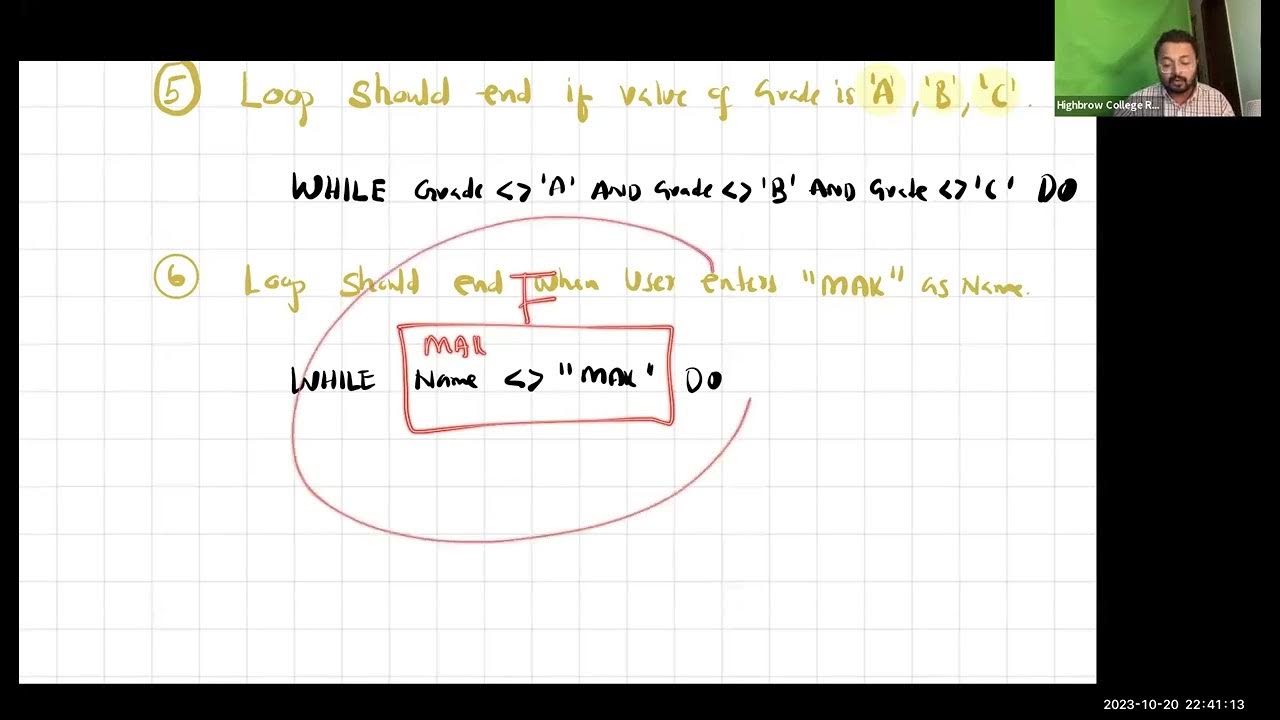 5 Loop Should end if value of Grade is 'A', 'B', 'C'.
Highbrow College R...
WHILE Grade <> 'A' AND Grade <> 'B' AND Grade <> 'C' DO
6 Loop Should end when User enters "MAK" as Name.
F
MAK
WHILE Name <> "MAK" DO
2023-10-20 22:41:13